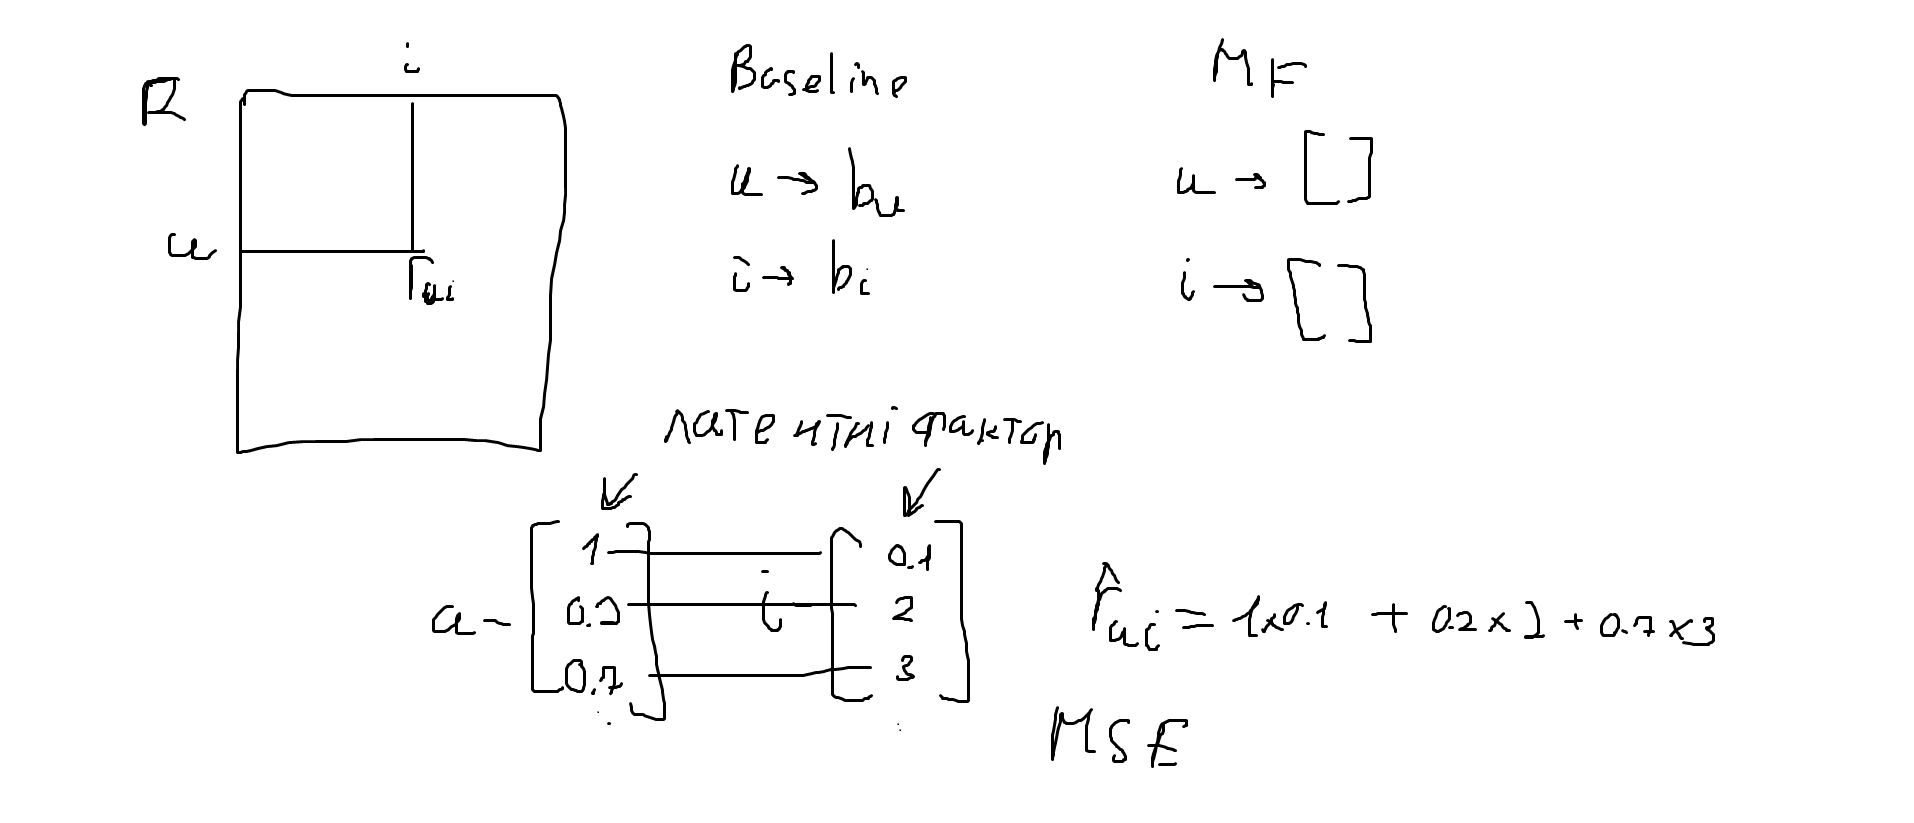 i
R
u
rui
Baseline
u → bu
i → bi
MF
u → [ ]
i → [ ]
латентні фактор
u - [ 1 0.2 0.7 ]
i [ 0.1 2 3 ]
r̂ui = 1x0.1 + 0.2 x 2 + 0.7 x 3
MSE